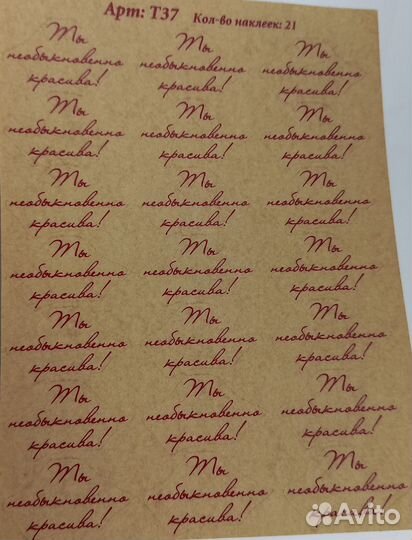 Арт: Т37 Кол-во наклеек: 21
Ты Ты Ты
необыкновенно необыкновенно необыкновенно
красива! красива! красива!
Ты Ты Ты
необыкновенно необыкновенно необыкновенно
красива! красива! красива!
Ты Ты Ты
необыкновенно необыкновенно необыкновенно
красива! красива! красива!
Ты Ты Ты
необыкновенно необыкновенно необыкновенно
красива! красива! красива!
Ты Ты Ты
необыкновенно необыкновенно необыкновенно
красива! красива! красива!
Ты Ты Ты
необыкновенно необыкновенно необыкновенно
красива! красива! красива!
Ты Ты Ты
необыкновенно необыкновенно необыкновенно
красива! красива! красива!
Avito